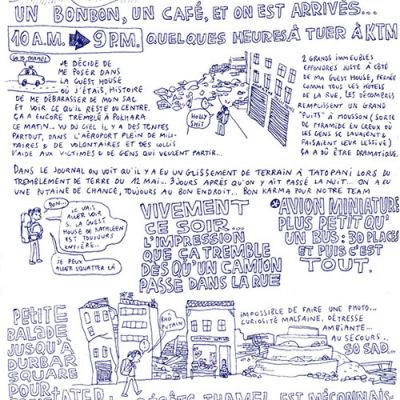 UN BONBON, UN CAFÉ, ET ON EST ARRIVÉS...
10 A.M. 9 P.M. QUELQUES HEURES À TUER À KTM
JE DÉCIDE DE
ME POSER DANS
LA GUEST HOUSE
OÙ J'ÉTAIS, HISTOIRE
DE ME DÉBARASSER DE MON SAC
ET VOIR CE QU'IL RESTE DU CENTRE.
ÇA A ENCORE TREMBLÉ À POKHARA
CE MATIN... VU DU CIEL IL Y A DES TENTES
PARTOUT, DANS L'AÉROPORT PLEIN DE MILI-
TAIRES & DE VOLONTAIRES ET DES COLIS
D'AIDE AUX VICTIMES & DE GENS QUI VEULENT PARTIR...
HOLLY
SHIT
2 GRANDS IMMEUBLES
EFFONDRÉS JUSTE À CÔTÉ
DE MA GUEST HOUSE, FERMÉE
COMME TOUS LES HÔTELS
DE LA RUE, LES DÉCOMBRES
REMPLISSENT UN GRAND
"PUITS" À MOUSSON (SORTE
DE PYRAMIDE EN CREUX OÙ
LES GENS SE LAVAIENT &
FAISAIENT LEUR LESSIVE)
ÇA A DÛ ÊTRE DRAMATIQUE.
DANS LE JOURNAL ON VOIT QU'IL Y A EU UN GLISSEMENT DE TERRAIN À TATOPANI LORS DU
TREMBLEMENT DE TERRE DU 12 MAI... 3 JOURS APRÈS QU'ON Y AIT PASSÉ LA NUIT... ON A EU
UNE PUTAINE DE CHANCE, TOUJOURS AU BON ENDROIT... BON KARMA POUR NOTRE TEAM
BON...
JE VAIS
ALLER VOIR
SI LA GUEST
HOUSE DE KATHLEEN
EST TOUJOURS
ENTIÈRE...
JE PEUX
ALLER SQUATTER LÀ
VIVEMENT
CE SOIR...
L'IMPRESSION
QUE ÇA TREMBLE
DÈS QU'UN CAMION
PASSE DANS LA RUE
*AVION MINIATURE
PLUS PETIT QU'
UN BUS: 30 PLACES
ET PUIS C'EST
TOUT.
PETITE
BALADE
JUSQU'À
DURBAR
SQUARE
POUR
OHO
PUTAIN
IMPOSSIBLE DE FAIRE UNE PHOTO...
CURIOSITÉ MALSAINE, DÉTRESSE
AMBIANTE...
AU SECOURS...
SO SAD...
THAMEL EST MÉCONNAIS